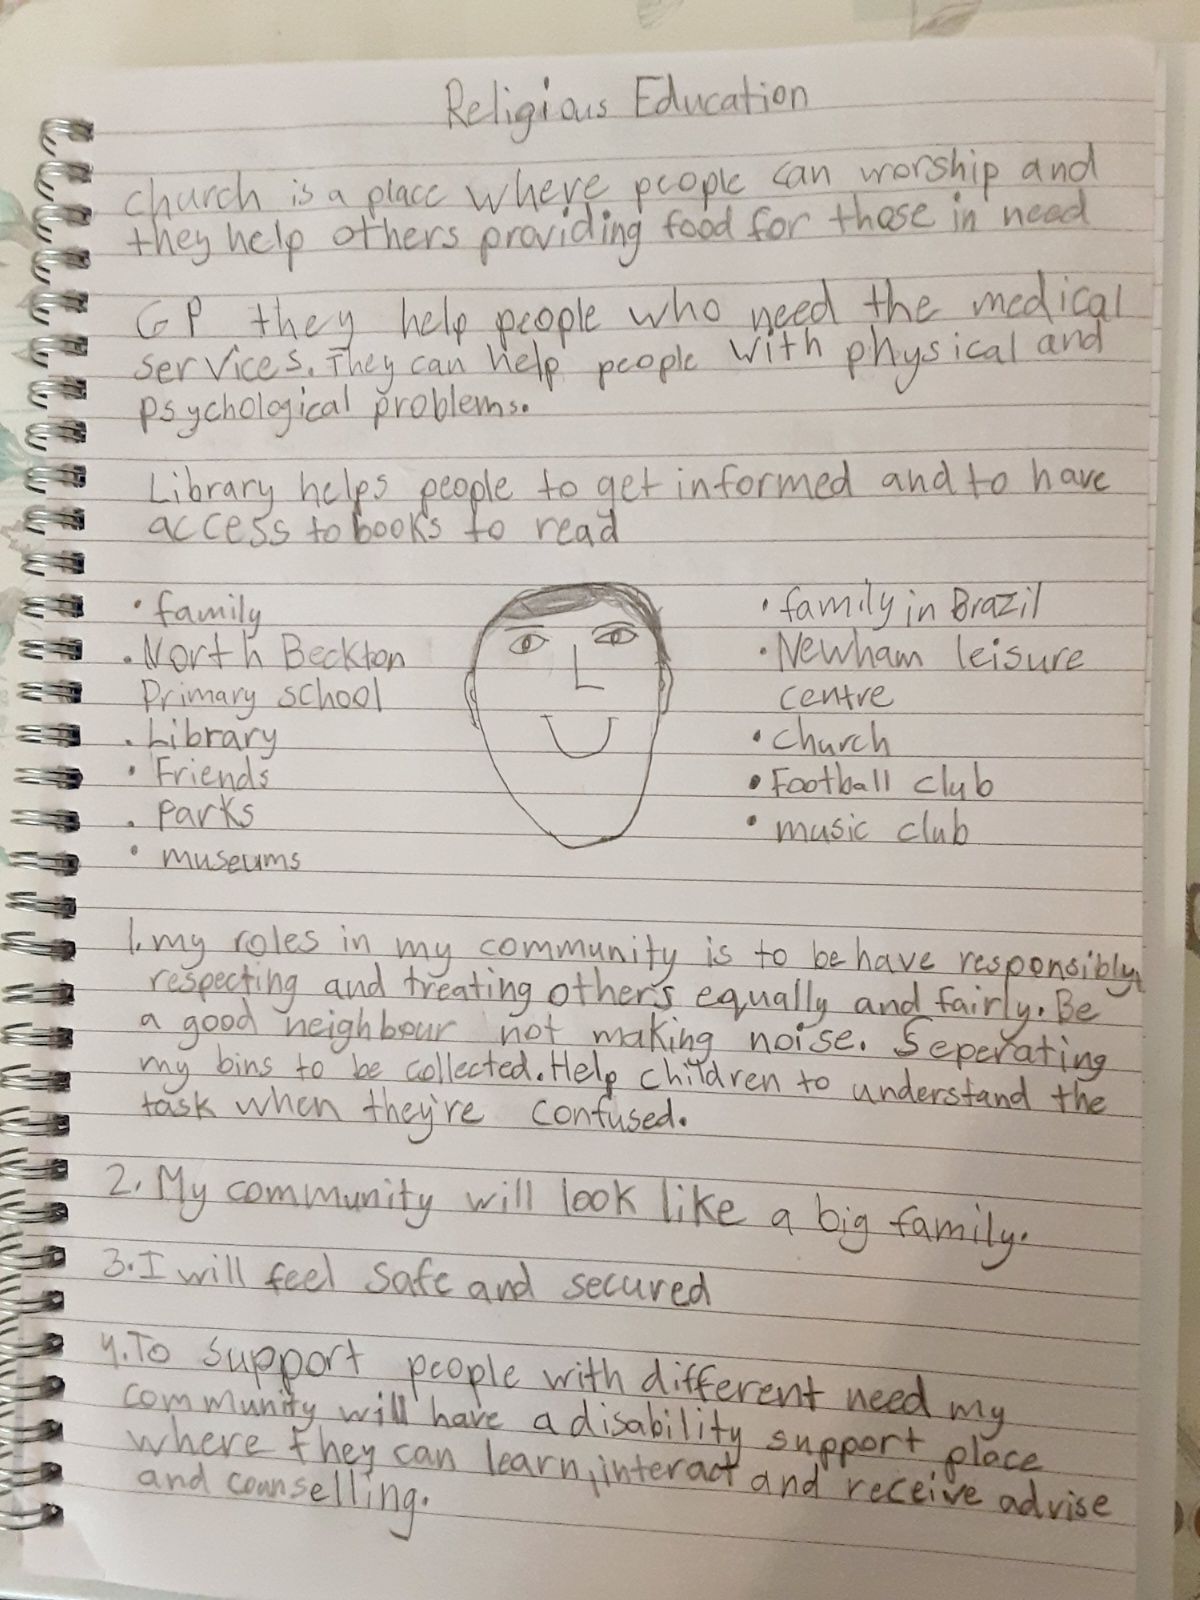 Religious Education
church is a place where people can worship and
they help others providing food for those in need
GP they help people who need the medical
services. They can help people with physical and
psychological problems.
Library helps people to get informed and to have
access to books to read
• family
• North Beckton
Primary school
• Library
• Friends
• parks
• museums
• family in Brazil
• Newham leisure
centre
• church
• Football club
• music club
1. my roles in my community is to behave responsibly,
respecting and treating others equally and fairly. Be
a good neighbour not making noise. Seperating
my bins to be collected. Help children to understand the
task when they're confused.
2. My community will look like a big family.
3. I will feel safe and secured
4. To support people with different need my
community will have a disability support place
where they can learn, interact and receive advise
and counselling.